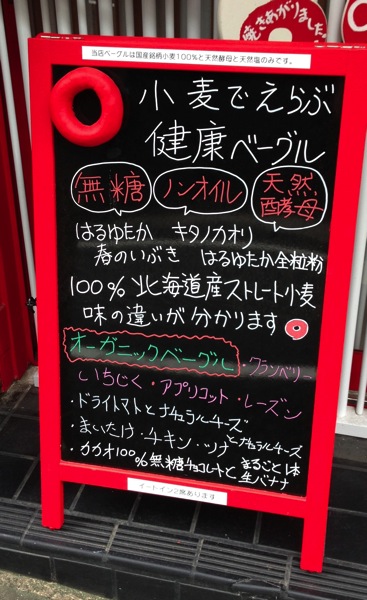 焼きあがりました!
当店ベーグルは国産銘柄小麦100%と天然酵母と天然塩のみです。
小麦でえらぶ
健康ベーグル
無糖 ノンオイル 天然酵母
はるゆたか キタノカオリ
春のいぶき はるゆたか全粒粉
100% 北海道産ストレート小麦
味の違いが分かります
オーガニックベーグル・クランベリー
いちじく・アプリコット・レーズン
・ドライトマトとナチュラルチーズ
・まいたけ・チキン・ツナとナチュラルチーズ
・カカオ100%無糖チョコレートとまるごと1本生バナナ
イートイン2席あります